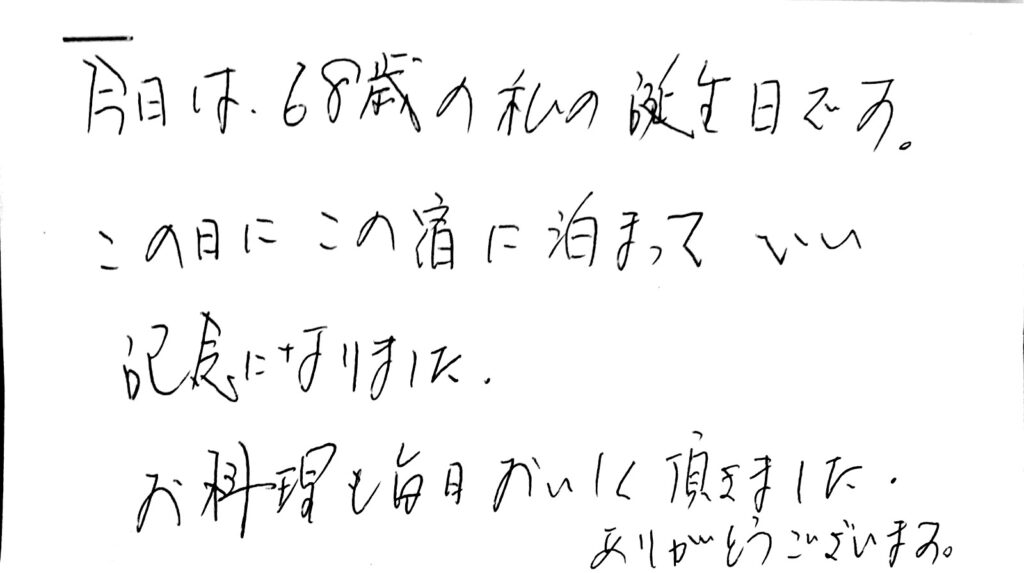 今日は、68歳の私の誕生日です。
この日にこの宿に泊まっていい
記念になりました。
お料理も毎日おいしく頂きました。
ありがとうございます。